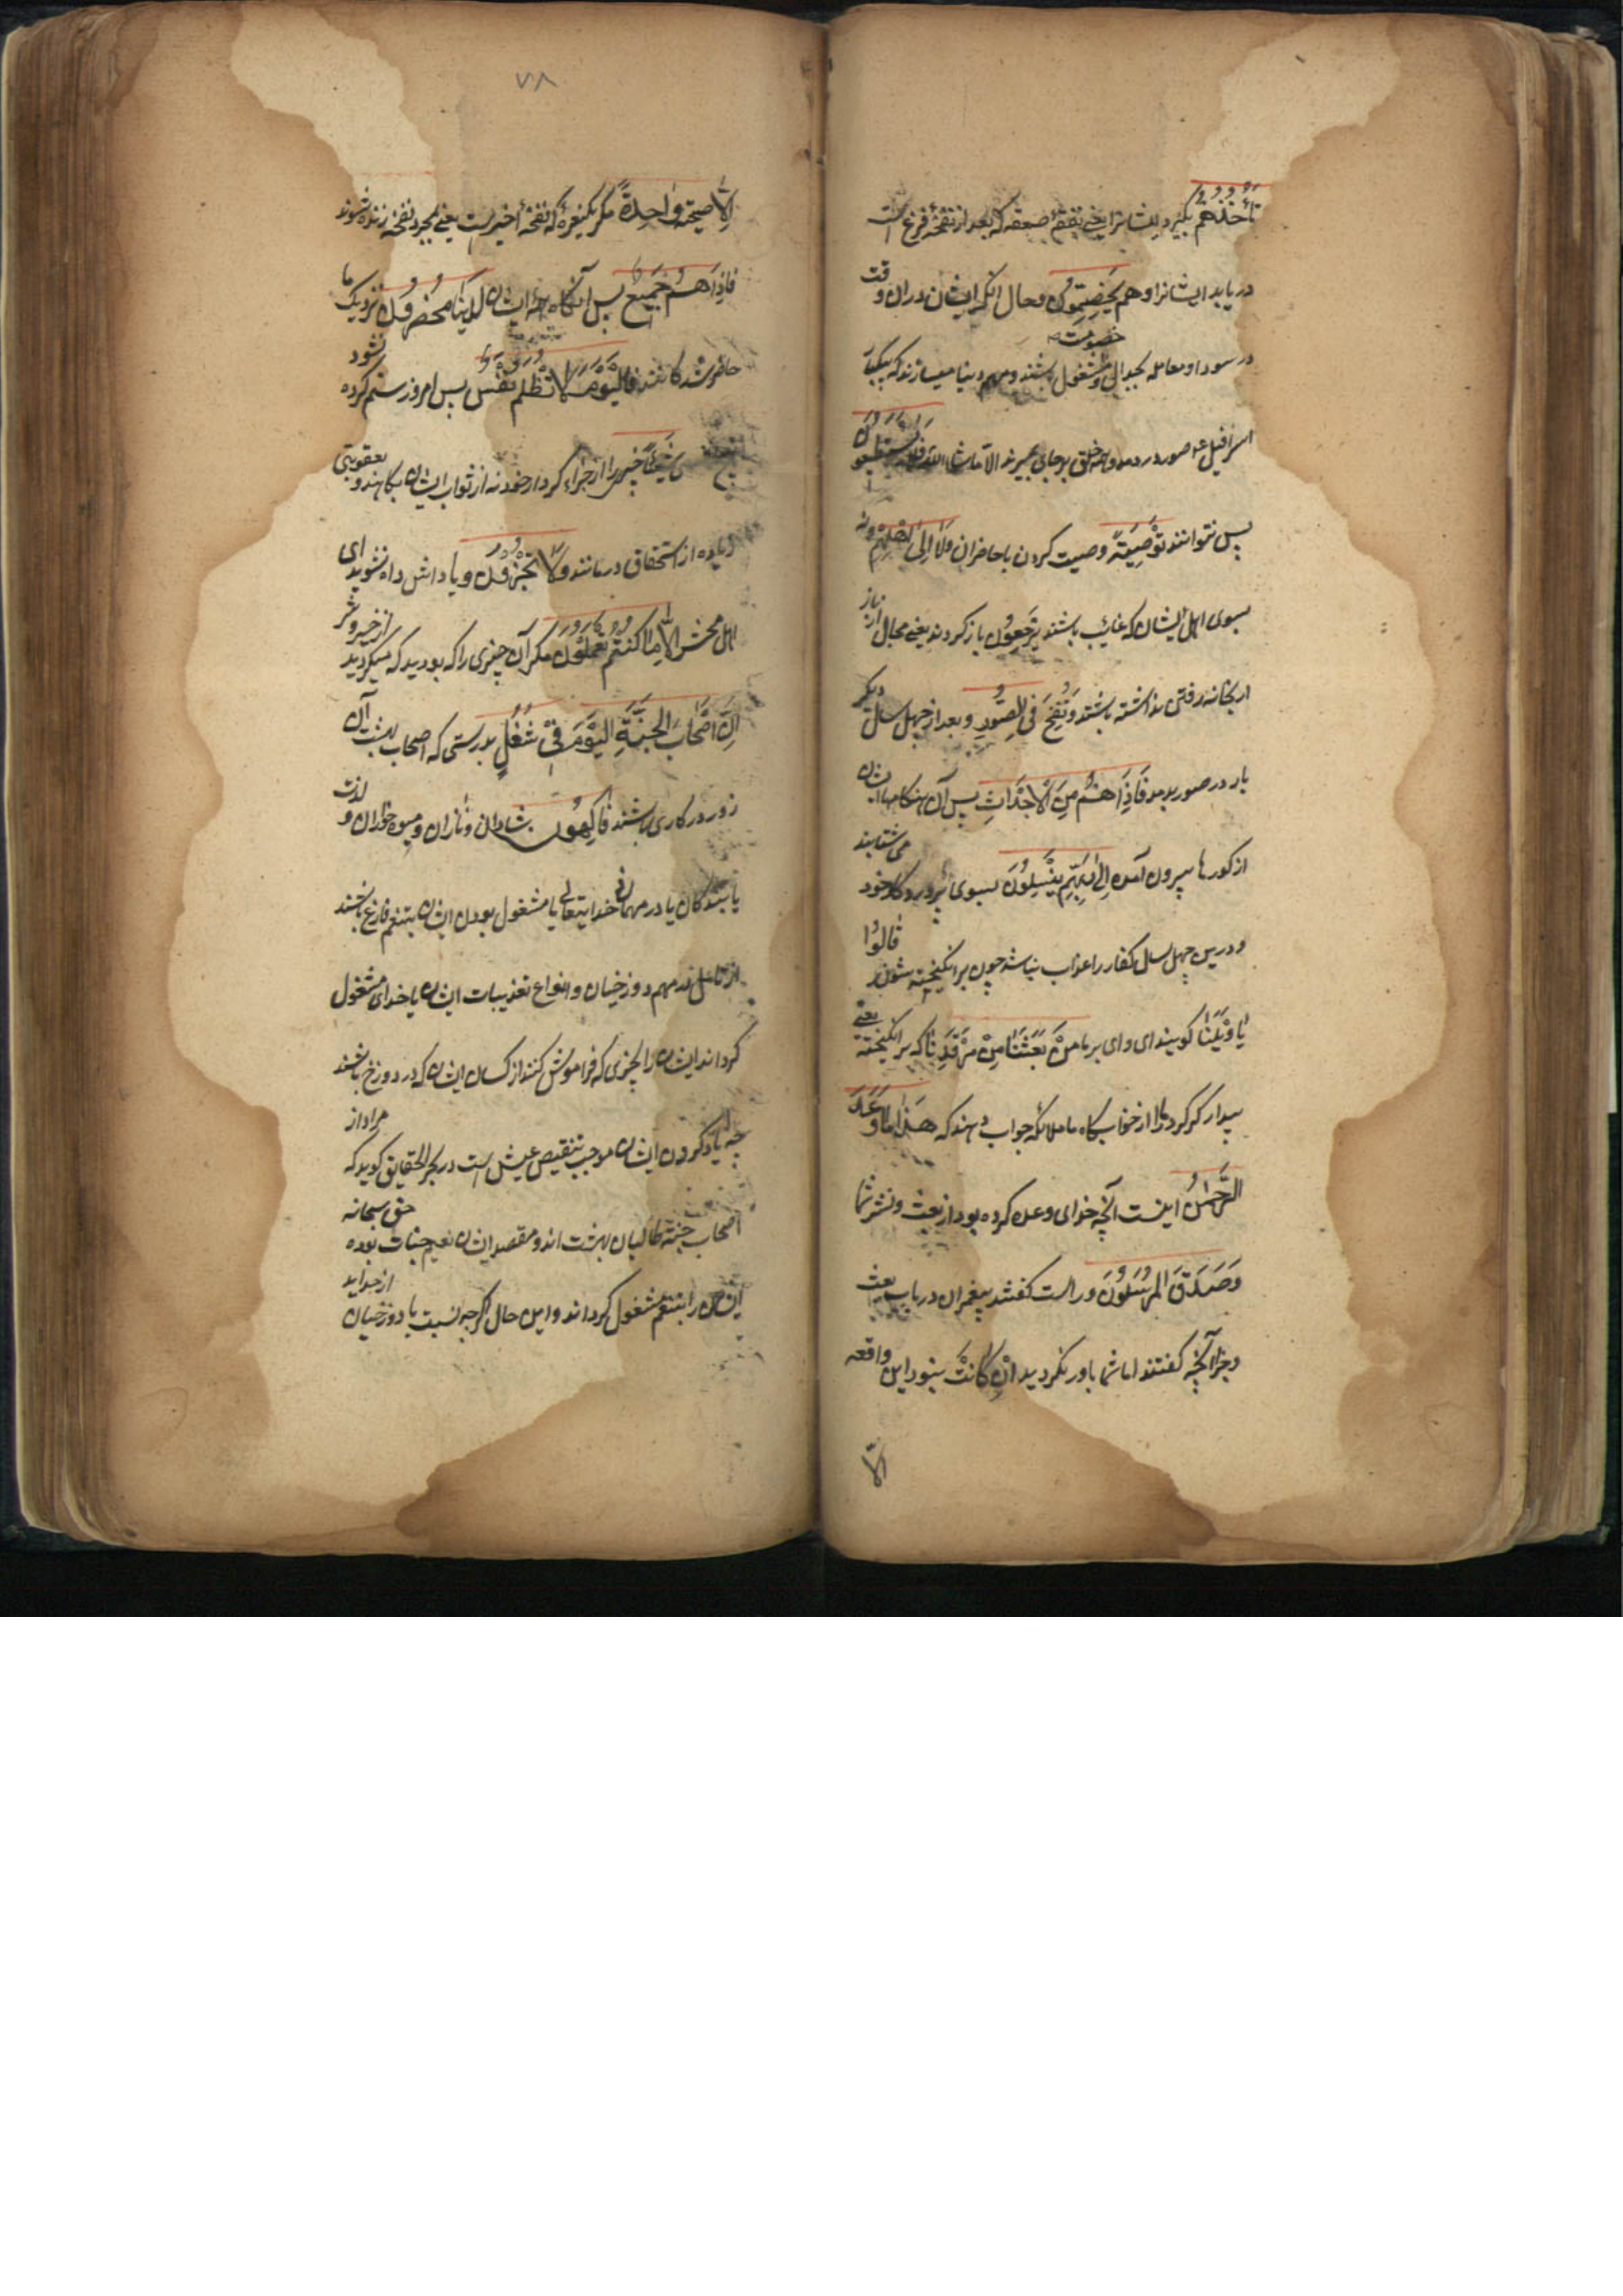 تَأْخُذُهُمْ بگیرد ایشانرا یعنی نفخهٔ صعقه که بعد از نفخهٔ فزع است
دریابد ایشانرا وهم یَخِصِّمُونَ و حال آنکه ایشان دران وقت
در سودا و معامله بجدال و خصومت مشغول باشند و مهم دنیا میسازند که یکبار
اسرافیل ع صور در دمد و همه خلق بر جای بمیرند الا ما شاء الله فَلَا یَسْتَطِیعُونَ
پس نتوانند تَوْصِیَةً وصیت کردن با حاضران وَلَا إِلَى أَهْلِهِمْ و نه
بسوی اهل ایشان که غایب باشند یَرْجِعُونَ باز کردند یعنی مجال از بازار
بخانه رفتن نداشته باشند وَنُفِخَ فِي الصُّورِ و بعد از چهل سال دیکر
بار در صور بدمد فَإِذَا هُمْ مِنَ الْأَجْدَاثِ پس آن هنکام ایشان
از کورها بیرون آمده إِلَى رَبِّهِمْ یَنْسِلُونَ بسوی پروردکار خود می شتابند
و درین چهل سال کفار را عذاب نباشد چون بر انکیخته شوند قَالُوا
یَا وَیْلَنَا کویند ای وای بر ما مَنْ بَعَثَنَا مِنْ مَرْقَدِنَا که بر انکیخت یعنی
بیدار که کرد ما را از خوابکاه ما ملائکه جواب دهند که هَذَا مَا وَعَدَ
الرَّحْمَنُ اینست آنچه خدای وعده کرده بود از بعث و نشر شما
وَصَدَقَ الْمُرْسَلُونَ و راست کفتند پیغمبران در باب بعث
و جزا آنچه کفتند اما شما باور نکردید انْ كَانَتْ نبود این واقعه
الّا
۷۸
إِلَّا صَیْحَةً وَاحِدَةً مکر یکنعره که نفخهٔ اخیرست یعنی بمجرد نفخه زنده شوند
فَإِذَا هُمْ جَمِیعٌ پس آنکاه همه ایشان لَدَیْنَا مُحْضَرُونَ نزدیک ما
حاضر شدکانند فَالْیَوْمَ لَا تُظْلَمُ نَفْسٌ پس امروز ستم کرده نشود
شَیْئًا چیزی را از جزاء کردار خود نه از ثواب ایشان بکاهند و بعقوبتی
زیاده از استحقاق درمانند وَلَا تُجْزَوْنَ و پاداش داده نشوید ای
اهل محشر إِلَّا مَا كُنْتُمْ تَعْمَلُونَ مکر آن چیزی را که بودید که میکردید از خیر و شر
إِنَّ أَصْحَابَ الْجَنَّةِ الْیَوْمَ فِي شُغُلٍ بدرستی که اصحاب بهشت آن
روز در کاری باشند فَاكِهُونَ شادان و نازان و میوه خوران و لذت
یابندکان یا در مهمانی خدایتعالی یا مشغول بودن ایشان بتنعم فارغ باشند
از تامل در مهم دوزخیان و انواع تعذیبات ایشان یا خدای مشغول
کرداند ایشان را بچیزی که فراموش کنند از کسان ایشان که در دوزخ باشند
چه یاد کردن ایشان موجب تنقیص عیش است در بحر الحقایق کوید که مراد از
اصحاب جنة طالبان بهشت اند و مقصد ایشان نعیم جنات بوده حق سبحانه
ایشان را بتنعم مشغول کرداند و این حال اکرچه نسبت با دوزخیان از جراید